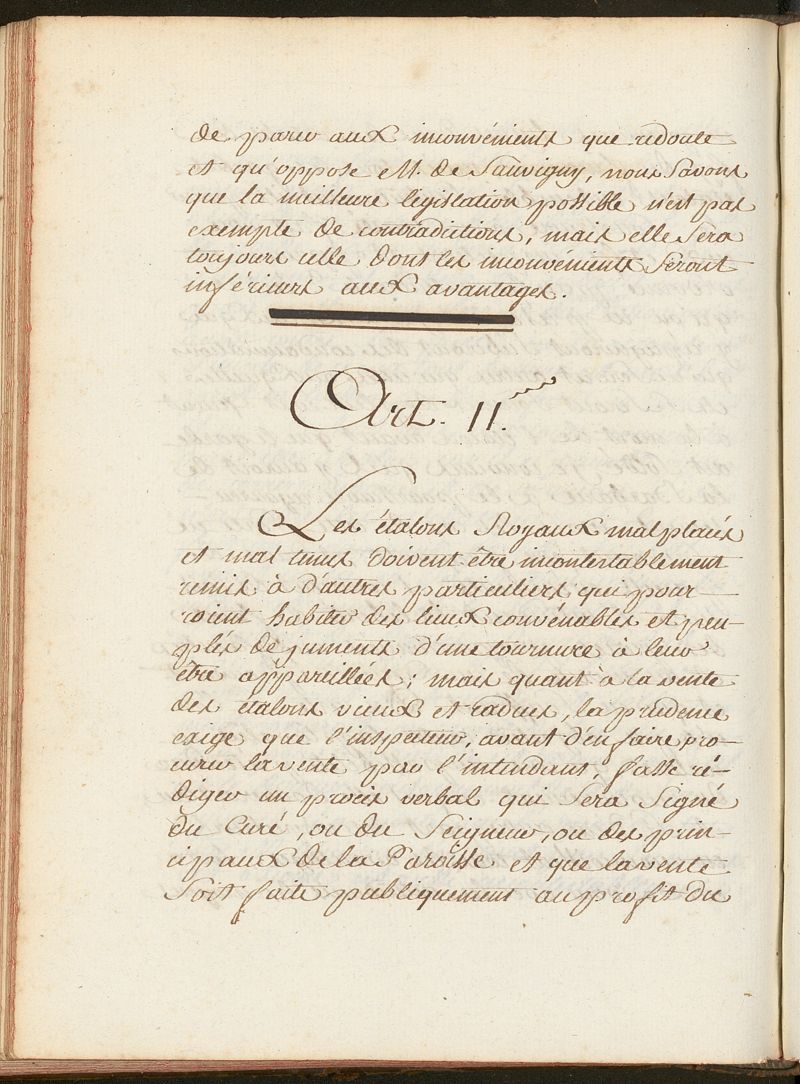 de parer aux inconvénients que redoute
et qu'oppose M. de Sauvigny, nous Savons
que la meilleure législation possible n'est pas
exempte de contradictions, mais elle Sera
toujours celle dont les inconvénients Seront
inférieurs aux avantages.
Art. 11.
Les étalons Royaux mal placés
et mal tenus doivent être incontestablement
remis à d'autres particuliers qui pour-
roient habiter des lieux convénables et peu-
plés de juments d'une tournure à leur
être appareillées; mais quant à la vente
des étalons vieux et radues, la prudence
exige que l'inspecteur, avant d'en faire pro-
curer la vente par l'intendant, fasse ré-
diger un procès verbal qui Sera Signé
du Curé, ou du Seigneur, ou des prin-
cipaux de la Paroisse et que la vente
Soit faite publiquement au profit du